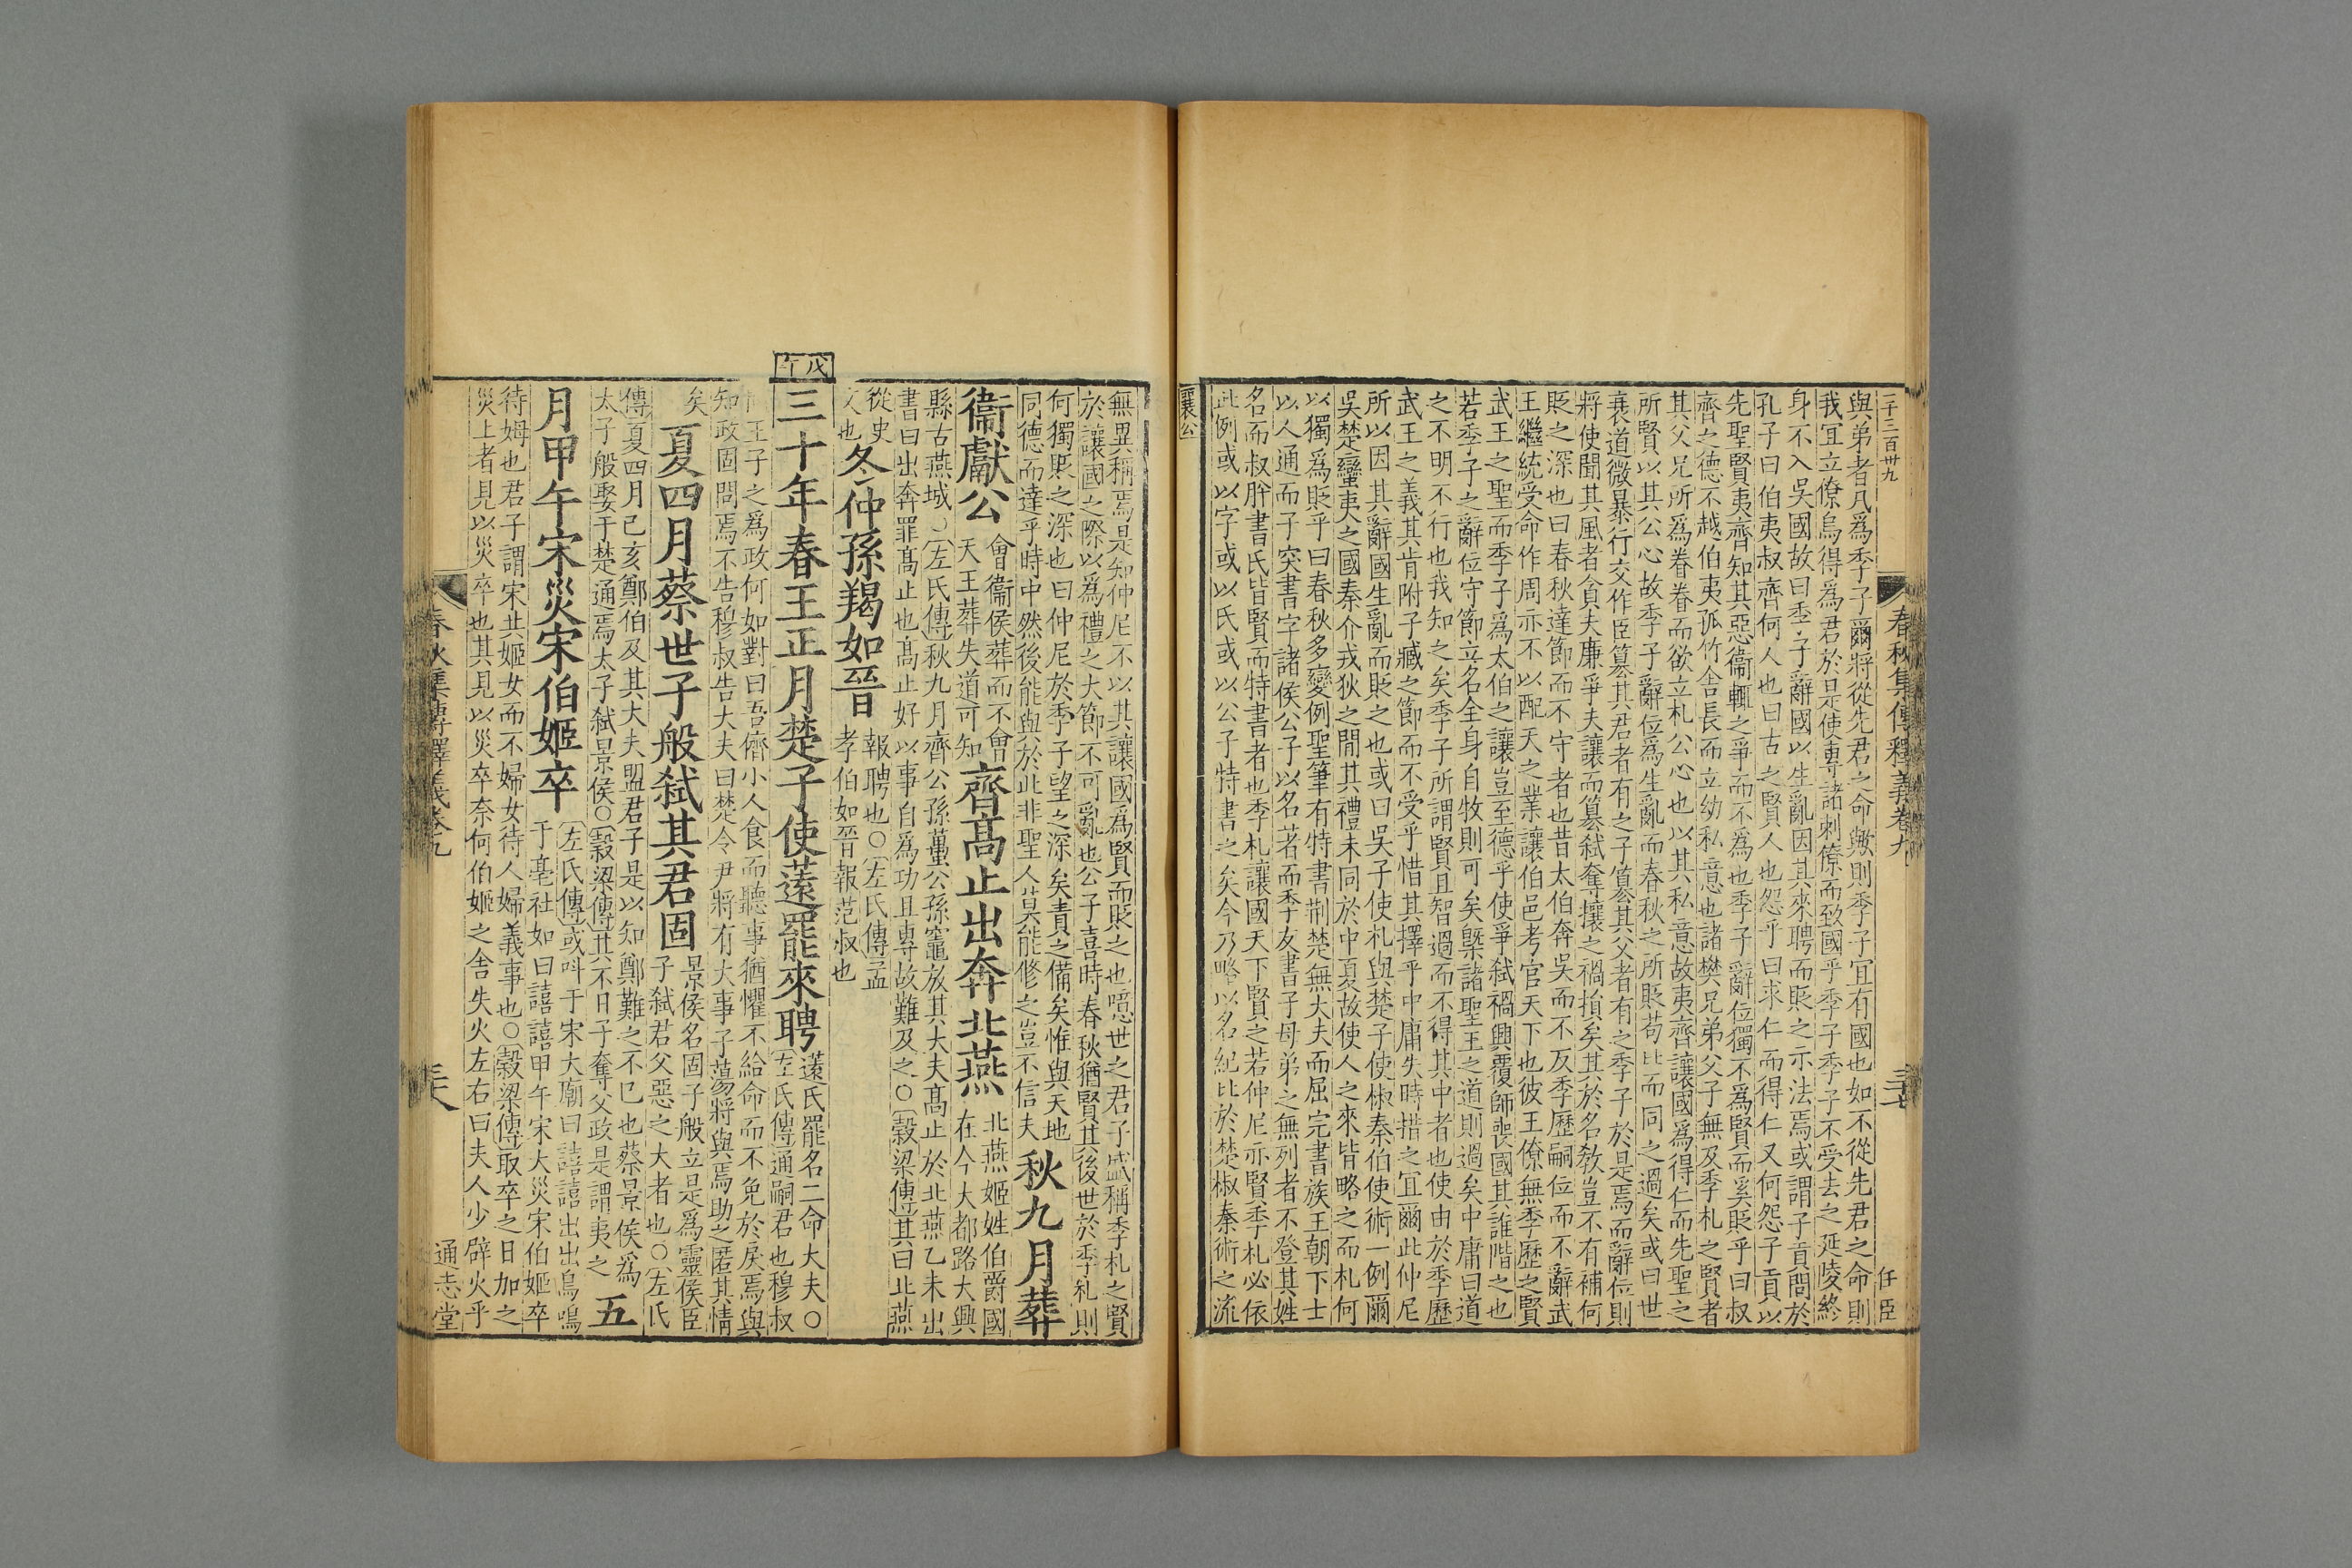 二千三百卅九
春秋集傳釋義卷九
三七
任臣
與弟者凡爲季子爾將從先君之命歟則季子宜有國也如不從先君之命則
我宜立僚烏得爲君於是使專諸刺僚而致國乎季子季子不受去之延陵終
身不入吳國故曰季子辭國以生亂因其來聘而貶之示法焉或謂子貢問於
孔子曰伯夷叔齊何人也曰古之賢人也怨乎曰求仁而得仁又何怨子貢以
先聖賢夷齊知其惡衞輒之爭而不爲也季子辭位獨不爲賢而奚貶乎曰叔
齊之德不越伯夷孤竹舍長而立幼私意也諸樊兄弟父子無及季札之賢者
其父兄所爲眷眷而欲立札公心也以其私意故夷齊讓國爲得仁而先聖之
所賢以其公心故季子辭位爲生亂而春秋之所貶苟比而同之過矣或曰世
衰道微暴行交作臣簒其君者有之子簒其父者有之季子於是焉而辭位則
將使聞其風者貪夫廉爭夫讓而簒弑奪攘之禍損矣其於名敎豈不有補何
貶之深也曰春秋達節而不守者也昔太伯奔吳而不反季歷嗣位而不辭武
王繼統受命作周亦不以配天之業讓伯邑考官天下也彼王僚無季歷之賢
武王之聖而季子爲太伯之讓豈至德乎使爭弑禍興覆師喪國其誰階之也
若季子之辭位守節立名全身自牧則可矣槩諸聖王之道則過矣中庸曰道
之不明不行也我知之矣季子所謂賢且智過而不得其中者也使由於季歷
武王之義其肯附子臧之節而不受乎惜其擇乎中庸失時措之宜爾此仲尼
所以因其辭國生亂而貶之也或曰吳子使札與楚子使椒秦伯使術一例爾
吳楚蠻夷之國秦介戎狄之間其禮未同於中夏故使人之來皆略之而札何
以獨爲貶乎曰春秋多變例聖筆有特書荆楚無大夫而屈完書族王朝下士
以人通而子突書字諸侯公子以名著而季友書子母弟之無列者不登其姓
名而叔肸書氏皆賢而特書者也季札讓國天下賢之若仲尼亦賢季札必依
此例或以字或以氏或以公子特書之矣今乃略以名紀比於楚椒秦術之流
襄公
無異稱焉是知仲尼不以其讓國爲賢而貶之也噫世之君子盛稱季札之賢
於讓國之際以爲禮之大節不可亂也公子喜時春秋猶賢其後世於季札則
何獨貶之深也曰仲尼於季子望之深矣責之備矣惟與天地
同德而達乎時中然後能與於此非聖人莫能修之豈不信夫
秋九月葬
衞獻公
會衞侯葬而不會
天王葬失道可知
齊高止出奔北燕
北燕姬姓伯爵國
在今大都路大興
縣古燕城○左氏傳秋九月齊公孫蠆公孫竈放其大夫高止於北燕乙未出
書曰出奔罪高止也高止好以事自爲功且專故難及之○穀梁傳其曰北燕
從史
文也
冬仲孫羯如晉
報聘也○左氏傳孟
孝伯如晉報范叔也
戊午
三十年春王正月楚子使薳罷來聘
薳氏罷名二命大夫○
左氏傳通嗣君也穆叔
王子之爲政何如對曰吾儕小人食而聽事猶懼不給命而不免於戾焉與
知政固問焉不告穆叔告大夫曰楚令尹將有大事子蕩將與焉助之匿其情
矣
夏四月蔡世子般弑其君固
景侯名固子般立是爲靈侯臣
子弑君父惡之大者也○左氏
傳夏四月己亥鄭伯及其大夫盟君子是以知鄭難之不已也蔡景侯爲
太子般娶于楚通焉太子弑景侯○穀梁傳其不日子奪父政是謂夷之
五
月甲午宋災宋伯姬卒
左氏傳或叫于宋大廟曰譆譆出出鳥鳴
于亳社如曰譆譆甲午宋大災宋伯姬卒
待姆也君子謂宋共姬女而不婦女待人婦義事也○穀梁傳取卒之日加之
災上者見以災卒也其見以災卒奈何伯姬之舍失火左右曰夫人少辟火乎
春秋集傳釋義卷九
三八
通志堂